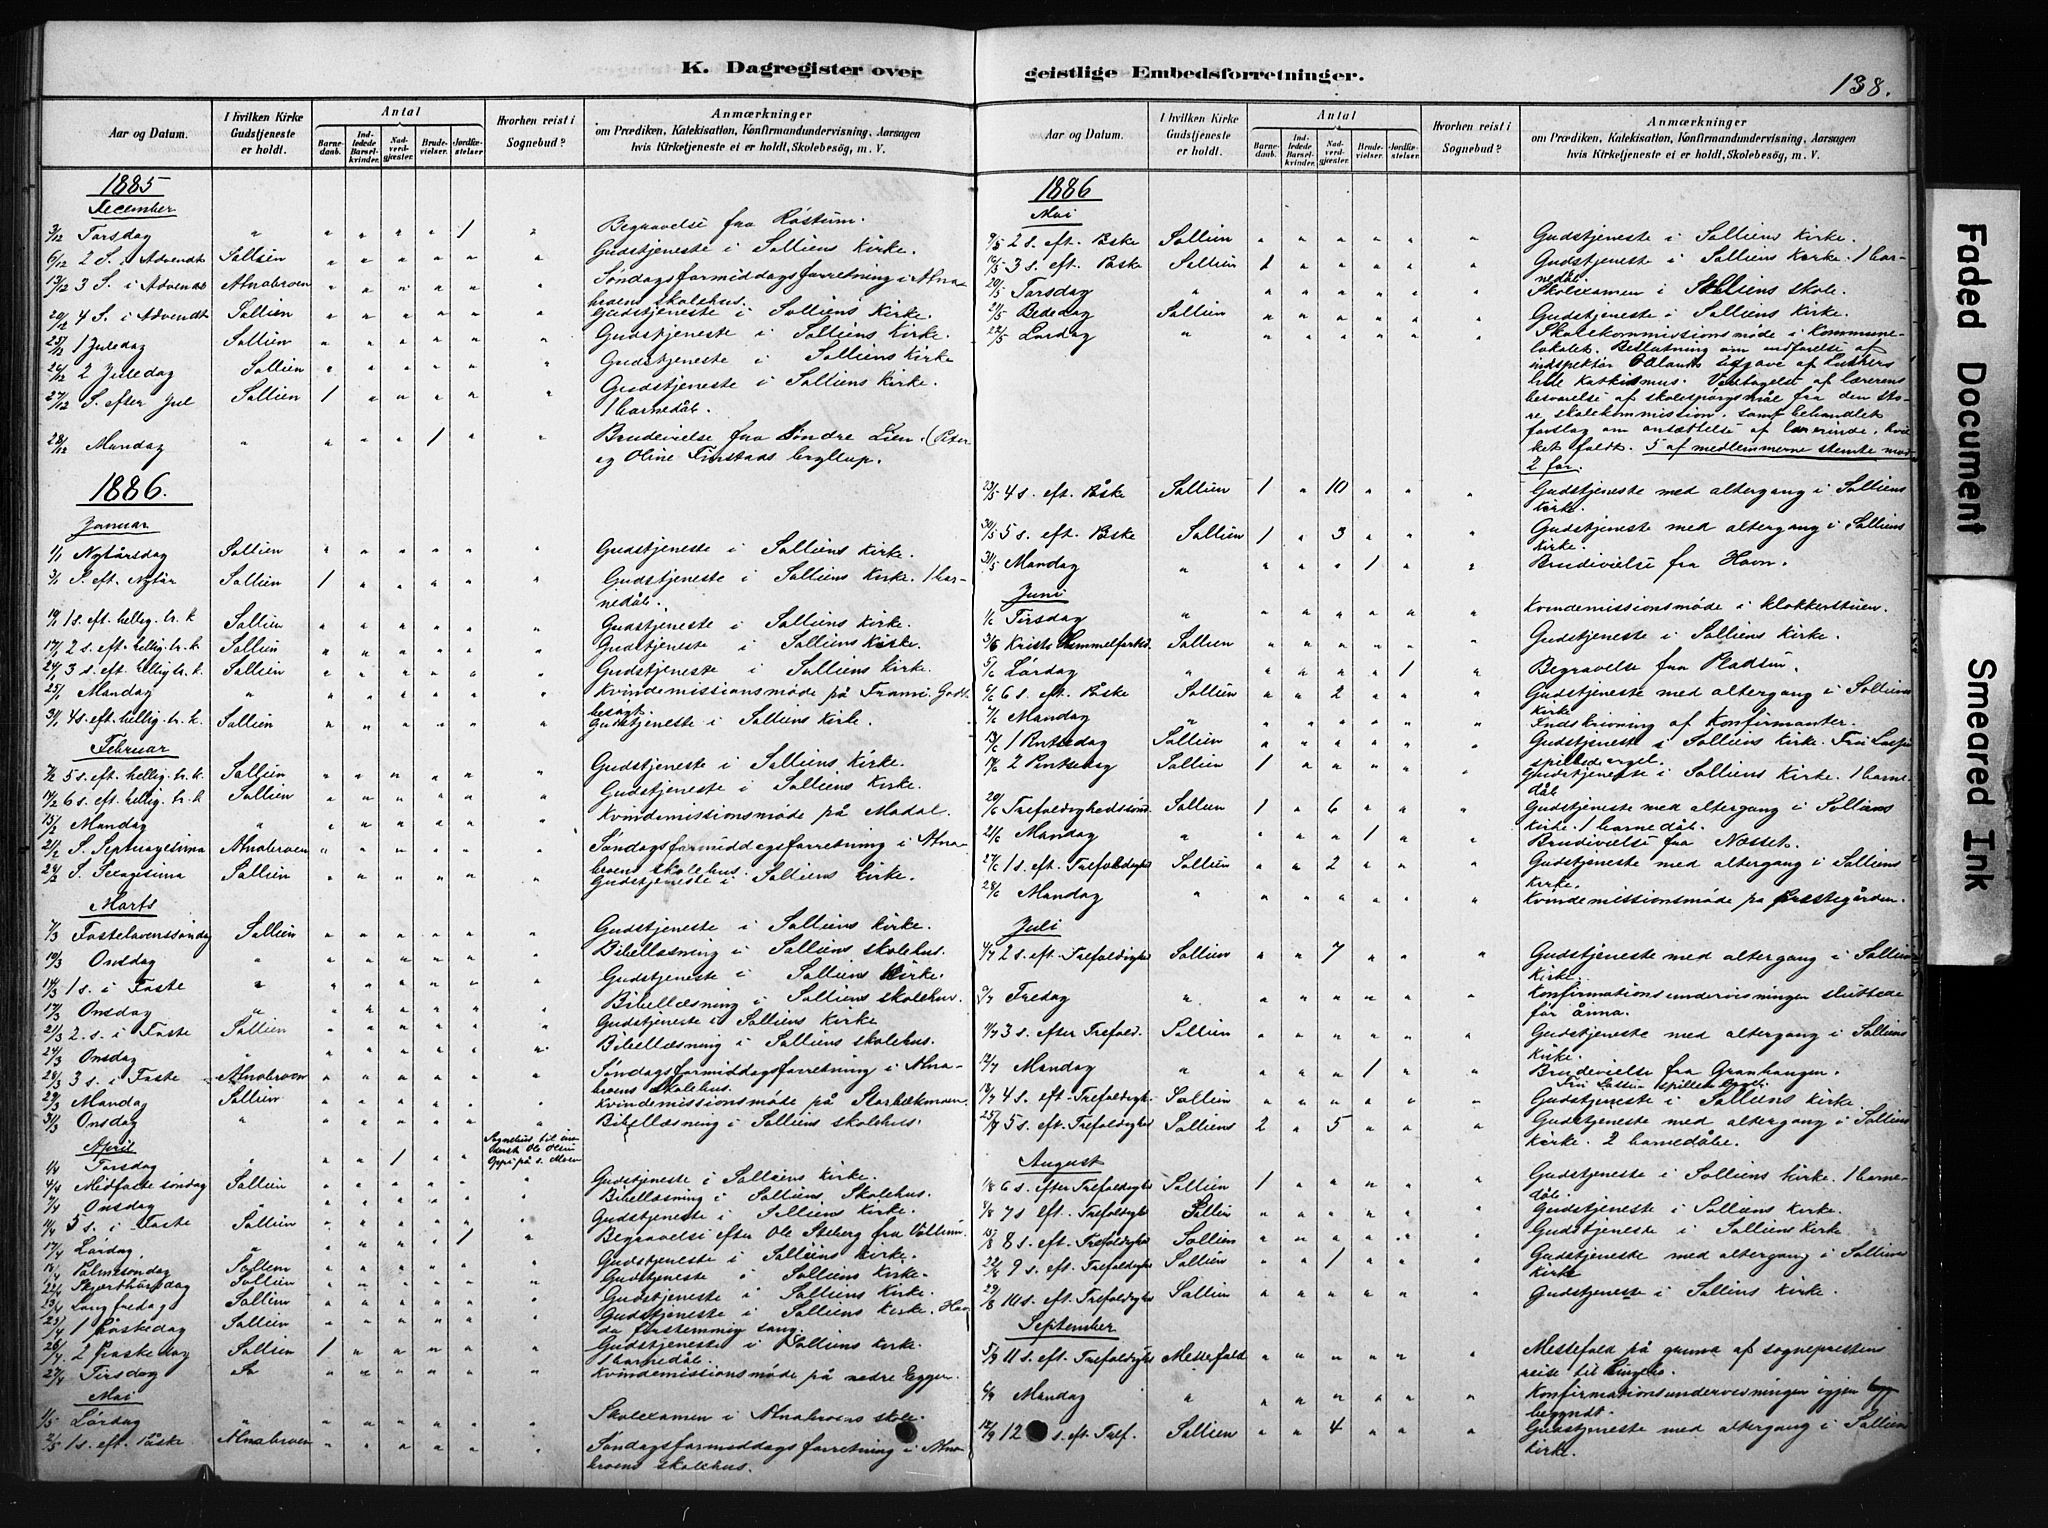 K. Dagregister over geistlige Embedsforretninger.
138.
Aar og Datum. I hvilken Kirke Gudstjeneste er holdt. Antal Barnedaab. Indledede Barselkvinder. Nadverdgjester. Brudevielser. Jordfæstelser. Hvorhen reist i Sognebud? Anmærkninger om Prædiken, Katekisation, Konfirmandundervisning, Aarsagen hvis Kirketjeneste ei er holdt, Skolebesøg, m. V.
1885
December
3/12 Torsdag " " " " " 1 " Begravelse fra
6/12 2 S. i Advendt Sollien " " " " " " Gudstjeneste i Solliens Kirke.
13/12 3 S. i Advendt Atnabroen " " " " " " Søndagsformiddagsforretning i Atna-
broens skolehus.
20/12 4 S. i Advendt Sollien " " " " " " Gudstjeneste i Solliens Kirke.
25/12 1 Juledag Sollien " " " " " " Gudstjeneste i Solliens Kirke.
26/12 2 Juledag Sollien " " " " " " Gudstjeneste i Solliens Kirke
27/12 S. efter Jul Sollien 1 " " " " " Gudstjeneste i Solliens Kirke.
1 barnedåb.
28/12 Mandag " " " " 1 " " Brudevielse fra Søndre Lien. (Peter
og Oline bryllup.
1886.
Januar
1/1 Nytårsdag Sollien " " " " " " Gudstjeneste i Solliens Kirke.
3/1 S. eft. Nytår Sollien 1 " " " " " Gudstjeneste i Solliens Kirke. 1 bar-
nedåb.
10/1 1 s. eft. hellig. tr. k Sollien " " " " " " Gudstjeneste i Solliens Kirke.
17/1 2 s. eft. hellig. tr. k. Sollien " " " " " " Gudstjeneste i Solliens Kirke.
24/1 3 s. eft hellig tr. k. Sollien " " " " " " Gudstjeneste i Solliens Kirke.
25/1 Mandag " " " " " " " Kvindemissionsmøde på Godt
besøgt.
31/1 4 s. eft. hellig. tr. k. Sollien " " " " " " Gudstjeneste i Solliens Kirke.
Februar
7/2 5 s. eft. hellig. tr. k. Sollien " " " " " " Gudstjeneste i Solliens Kirke.
14/2 6 s. eft. hellig. tr. k Sollien " " " " " " Gudstjeneste i Solliens Kirke.
15/2 Mandag " " " " " " " Kvindemissionsmøde på
21/2 S. Septuagesima Atnabroen " " " " " " Søndagsformiddagsforretning i Atna-
broens skolehus.
28/2 S. Sexagesima Sollien " " " " " " Gudstjeneste i Solliens Kirke.
Marts
7/3 Fastelavenssøndag Sollien " " " " " " Gudstjeneste i Solliens Kirke.
10/3 Onsdag " " " " " " " Bibellæsning i Solliens skolehus.
14/3 1 s. i Faste " " " " " " " Gudstjeneste i Solliens Kirke.
17/3 Onsdag " " " " " " " Bibellæsning i Solliens skolehus.
21/3 2. s. i Faste Sollien " " " " " " Gudstjeneste i Solliens Kirke
24/3 Onsdag " " " " " " " Bibellæsning i Solliens skolehus.
28/3 3 s. i Faste Atnabroen " " " " " " Søndagsformiddagsforretning i Atna-
broens skolehus.
29/3 Mandag Sollien " " " " " " Kvindemissionsmøde på
31/3 Onsdag " " " " " " " Bibellæsning i Solliens skolehus.
April
1/4 Torsdag " " " 1 " " Sognebud til Ole Olsen
4/4 Midfaste søndag Sollien " " " " " " Gudstjeneste i Solliens Kirke.
7/4 Onsdag " " " " " " " Bibellæsning i Solliens Skolehus.
11/4 5 s. i Faste Sollien " " " " " " Gudstjeneste i Solliens Kirke.
17/4 Lørdag " " " " " 1 " Begravelse efter Ole fra
18/4 Palmesøndag Sollien " " " " " " Gudstjeneste i Solliens Kirke.
22/4 Skjærthorsdag Sollien " " " " " " Gudstjeneste i Solliens Kirke.
23/4 Langfredag Sollien " " " " " " Gudstjeneste i Solliens Kirke.
25/4 1 Påskedag Sollien " " " " " " Gudstjeneste i Solliens Kirke.
firstemmig sang.
26/4 2 Påskedag Sollien 1 " " " " " Gudstjeneste i Solliens Kirke.
1 barnedåb.
27/4 Tirsdag " " " " " " Kvindemissionsmøde på nedre Eggen
Mai
1/5 Lørdag " " " " " " " Skolexamen i Atnabroens skole.
2/5 1 s. eft. Påske Atnabroen " " " " " " Søndagsformiddagsforretning i Atna-
broens skolehus.
Aar og Datum. I hvilken Kirke Gudstjeneste er holdt. Antal Barnedaab. Indledede Barselkvinder. Nadverdgjester. Brudevielser. Jordfæstelser. Hvorhen reist i Sognebud? Anmærkninger om Prædiken, Katekisation, Konfirmandundervisning, Aarsagen hvis Kirketjeneste ei er holdt, Skolebesøg, m. V.
1886
Mai
9/5 2 s. eft. Påske Sollien " " " " " " Gudstjeneste i Solliens Kirke.
16/5 3 s. eft. Påske Sollien 1 " " " " " Gudstjeneste i Solliens Kirke. 1 bar-
nedåb.
20/5 Torsdag " " " " " " " Skolexamen i Solliens skole.
21/5 Bededag Sollien " " " " " " Gudstjeneste i Solliens Kirke.
22/5 Lørdag " " " " " " " Skolekommissionsmøde i Kommune-
lokalet. Beslutning om indførelse af
indspektør udgave af Luthers
lille katkismus. Vedtagelse af lærerens
besvarelse af skolespørgsmål fra den sto-
re skolekommission, samt behandlet
forslag om ansættelse af lærerinde, hvil-
ket faldt. 5 af medlemmerne stemte mod
2 for.
23/5 4 s. eft. Påske Sollien 1 " 10 " " " Gudstjeneste med altergang i Solliens
kirke.
30/5 5 s. eft. Påske Sollien 1 " 3 " " " Gudstjeneste med altergang i Solliens
Kirke.
31/5 Mandag " " " " 1 " " Brudevielse fra Hovn.
Juni
1/6 Tirsdag " " " " " " " Kvindemissionsmøde i klokkerstuen.
3/6 Kristi Himmelfartsd. Sollien " " " " " " Gudstjeneste i Solliens Kirke.
5/6 Lørdag " " " " " 1 " Begravelse fra Pladsen.
6/6 6 s. eft. Påske Sollien " " 2 " " " Gudstjeneste med altergang i Solliens
Kirke
7/6 Mandag " " " " " " " Indskrivning af Konfirmanter.
13/6 1 Pintsedag Sollien " " " " " " Gudstjeneste i Solliens Kirke.
spillede orgel.
14/6 2 Pintsedag Sollien 1 " " " " " Gudstjeneste i Solliens Kirke. 1 barne-
dåb
20/6 Trefoldighedssønd. Sollien 1 " 6 " " " Gudstjeneste med altergang i Solliens
Kirke. 1 barnedåb.
21/6 Mandag " " " " 1 " " Brudevielse fra Næsset.
27/6 1 s. eft. Trefoldighd Sollien " " 2 " " " Gudstjeneste med altergang i Solliens
Kirke.
28/6 Mandag " " " " " " " Kvindemissionsmøde på præstegården.
Juli
4/7 2 s. eft. Trefoldighd Sollien " " 7 " " " Gudstjeneste med altergang i Sollien
Kirke.
9/7 Fredag " " " " " " " Konfirmationsundervisningen sluttede
før ånna.
11/7 3 s. efter Trefold. Sollien " " " " " " Gudstjeneste med altergang i Solliens
Kirke.
12/7 Mandag " " " " 1 " " Brudevielse fra Granhaugen.
18/7 4 s. eft. Trefoldighd. Sollien " " " " " " Gudstjeneste i Solliens Kirke.
25/7 5 s. eft. Trefoldighd Solliens 2 " 5 " " " Gudstjeneste med altergang i Solliens
Kirke. 2 barnedåbe.
August
1/8 6 s. efter Trefoldighd Sollien 1 " " " " " Gudstjeneste i Solliens kirke. 1 barne-
dåb.
8/8 7 s. eft. Trefoldighd Sollien " " " " " " Gudstjeneste i Solliens Kirke.
15/8 8 s. eft. Trefoldighd Sollien " " " " " " Gudstjeneste i Solliens Kirke
22/8 9 s. eft. Trefoldighd Sollien " " 1 " " " Gudstjeneste med altergang i Solliens
Kirke
29/8 10 s. eft. Trefoldighd Sollien " " " " " " Gudstjeneste i Solliens Kirke.
September
5/9 11 s. eft. Trefoldighd Messefald " " " " " " Messefald på grund af sognepræstens
reise til
6/9 Mandag " " " " " " " Konfirmationsundervisningen igjen
begyndt.
12/9 12 s. eft. Tref. Sollien " " 4 " " " Gudstjeneste med altergang i Solliens
Kirke.
Faded Document
Smeared Ink